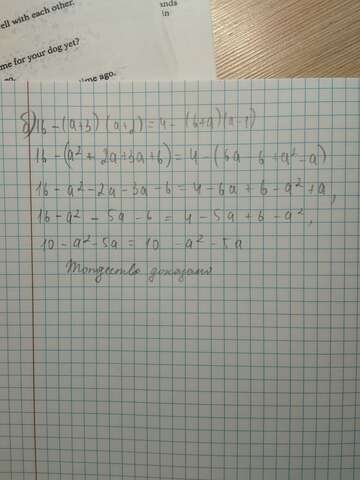 ell with each other.
nds
in
me for your dog yet?
time ago.
б) 16 - (a+3)(a+2) = 4 - (6+a)(a-1)
16 - (a² + 2a + 3a + 6) = 4 - (6a - 6 + a² - a)
16 - a² - 2a - 3a - 6 = 4 - 6a + 6 - a² + a,
16 - a² - 5a - 6 = 4 - 5a + 6 - a²,
10 - a² - 5a = 10 - a² - 5a
Тождество доказано